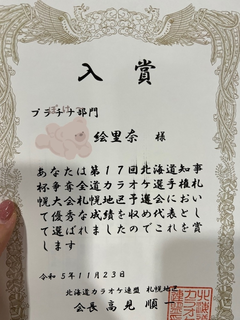 入賞
プラチナ部門
絵里奈 様
あなたは第17回北海道知事
杯争奪全道カラオケ選手権札
幌大会札幌地区予選会におい
て優秀な成績を収め代表とし
て選ばれましたのでこれを賞
します
令和5年11月23日
北海道カラオケ連盟 札幌地区
会長 高見 順一